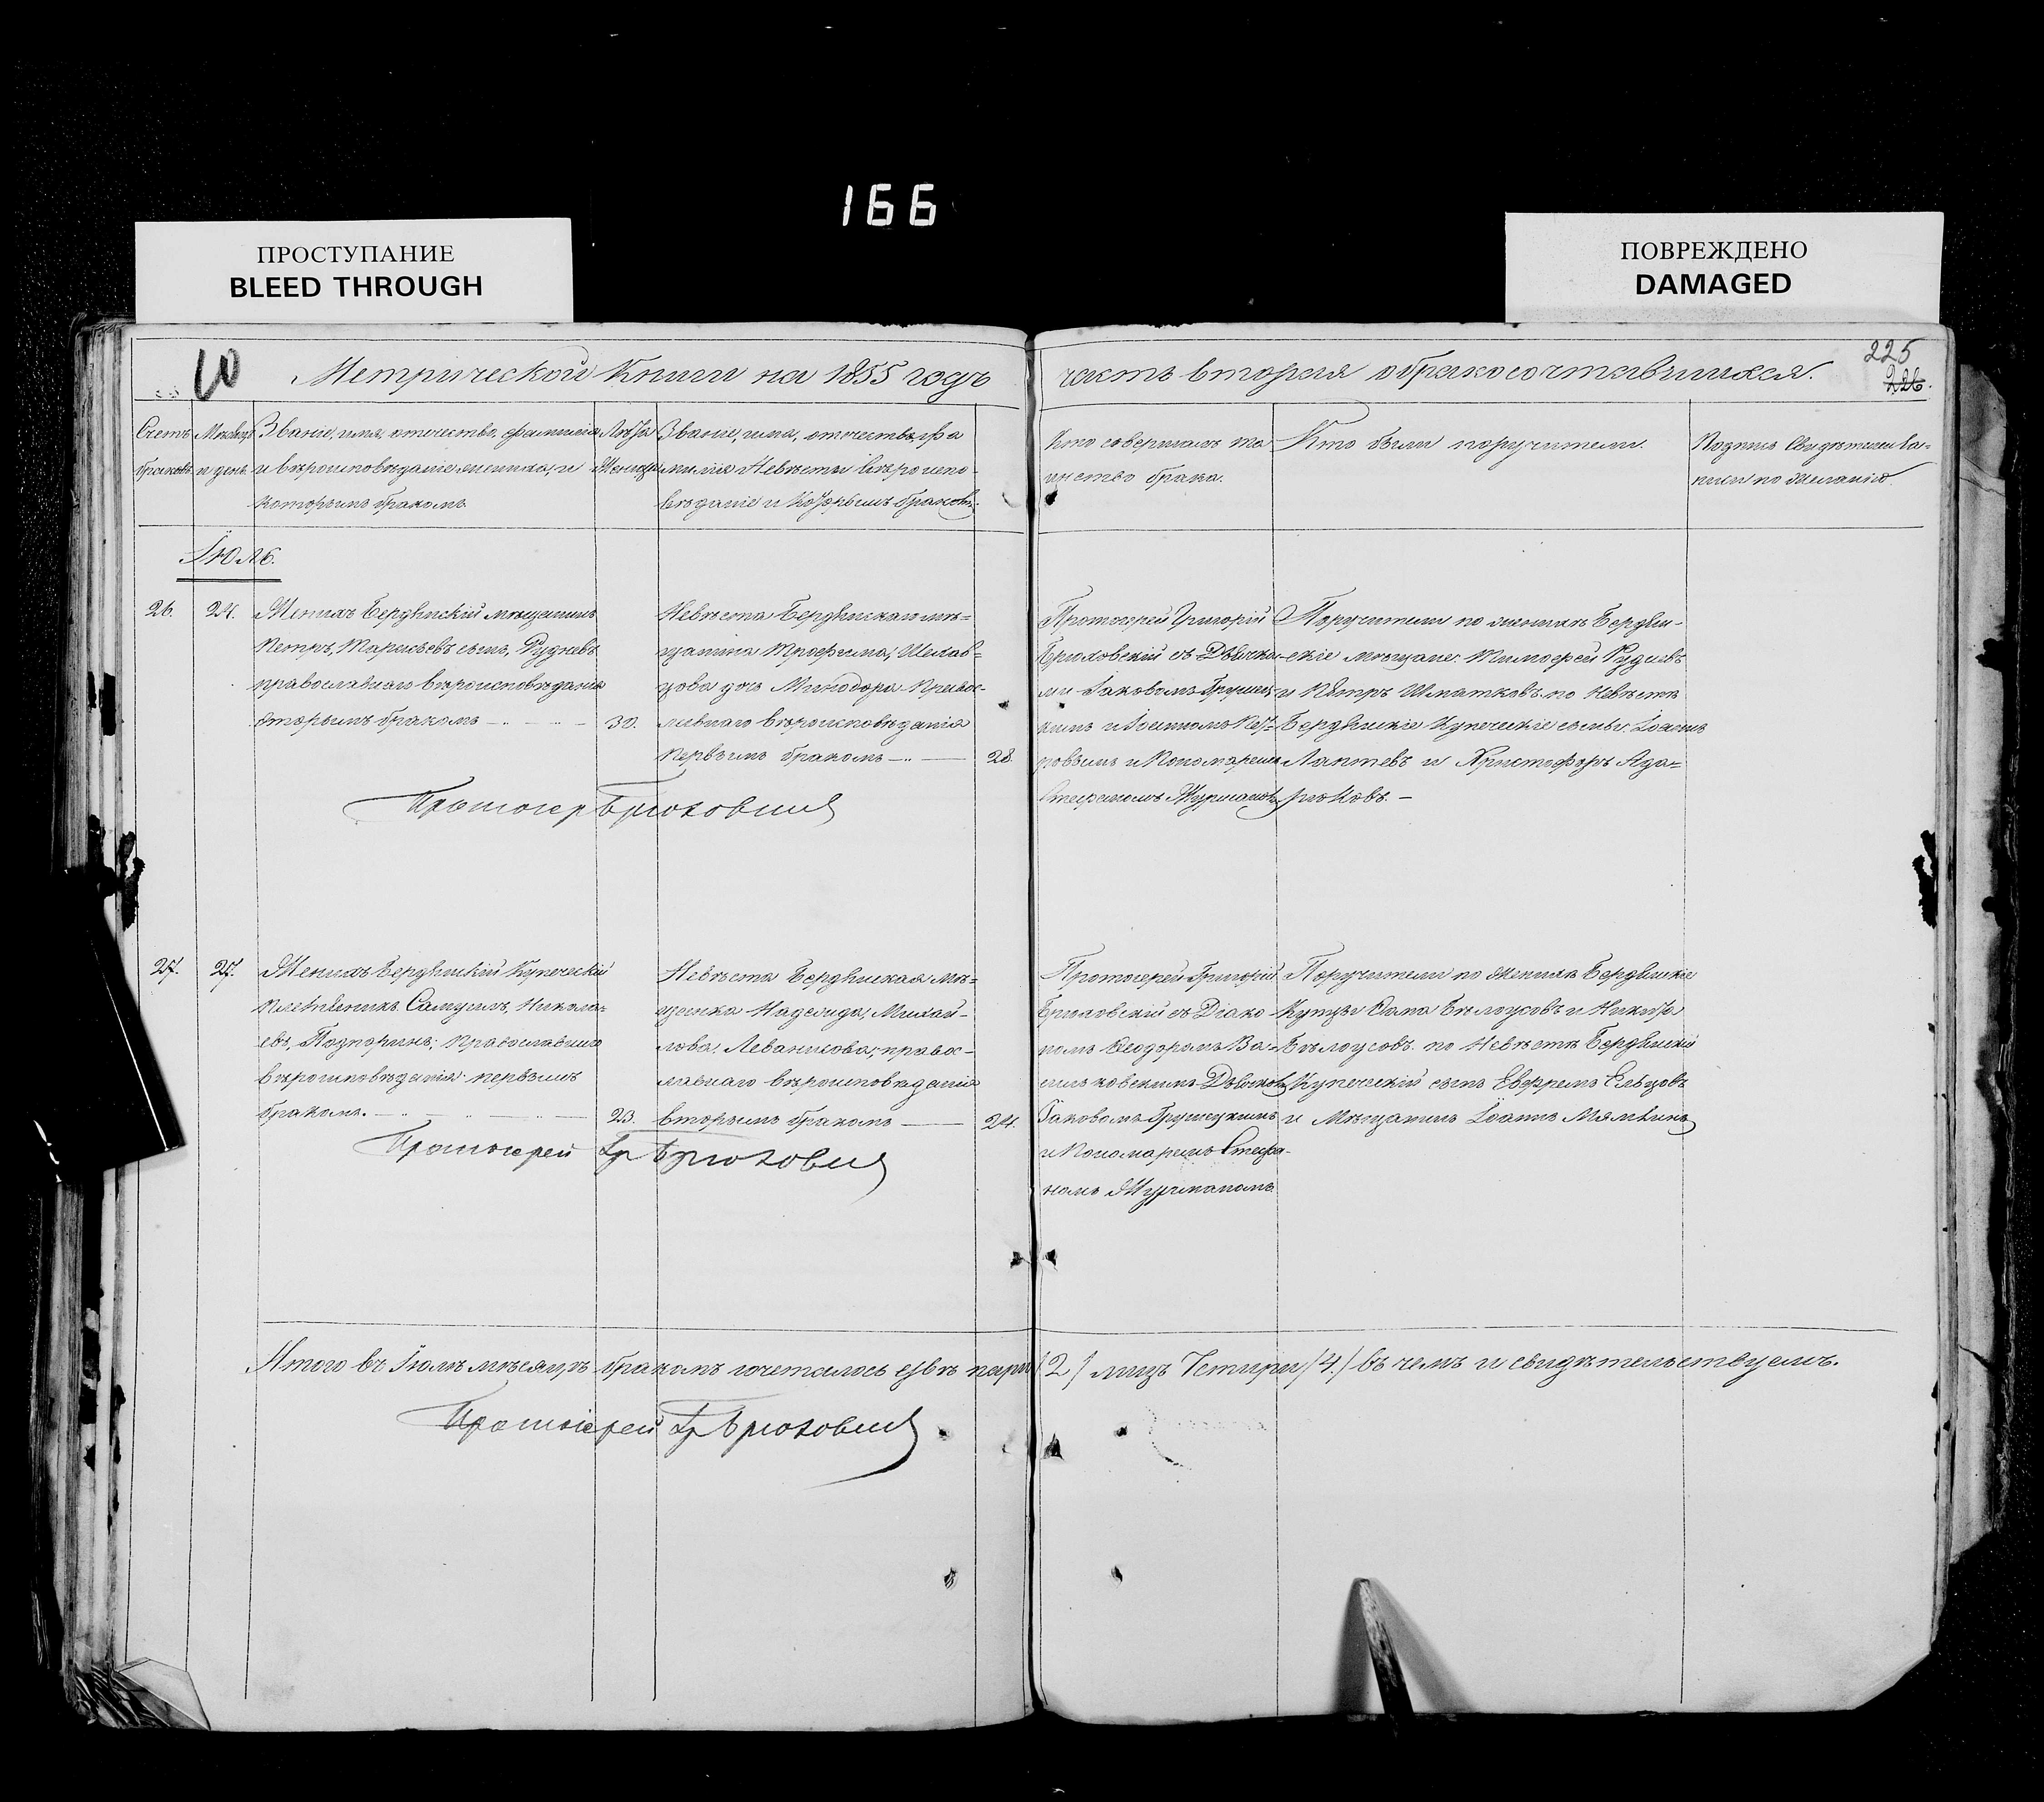 166
ПРОСТУПАНИЕ
BLEED THROUGH
ПОВРЕЖДЕНО
DAMAGED
10
Метрической Книги на 1855 годъ
часть вторая о бракосочетавшихся.
225
226.
Счетъ
браковъ.
Мѣсяцъ
и день.
Званіе, имя, отчество, фамилія
и вѣроисповѣданіе жениха, и
которымъ бракомъ
Лѣта
Жениха
Званіе, има, отчество, фа
милія Невѣсты вѣроиспо-
вѣданіе и которымъ бракомъ
Кто совершалъ та
инство брака.
Кто были поручители.
Подпись Свидѣтелей за-
писи по желанію.
Іюль.
26.
24.
Женихъ Бердянскій мѣщанинъ
Петръ, сынъ, Рудневъ
православнаго вѣроисповѣданія
вторымъ бракомъ
30.
Невѣста Бердянскаго мѣ=
щанина Трофима,
дочь Минодора Правос-
лавнаго вѣроисповѣданія
первымъ бракомъ
28.
Протоіерей Григорій
Брюховскій съ Дьячка-
ми Іаковомъ Грушец-
кимъ и
и Пономаремъ
Стефаномъ Журманомъ
Поручители по женихѣ Бердян-
скіе мѣщане: Тимофей Рудневъ
и Петръ Шматковъ. по Невѣстѣ
Бердянскіе Купеческіе сыны: Іоаннъ
и Христофоръ
Протоіер Брюховскій
27.
27.
Женихъ Бердянскій Купеческій
племянникъ Самуилъ, Никола=
евъ, православнаго
вѣроисповѣданія первымъ
бракомъ.
23.
Невѣста Бердянская мѣ=
щанка Надежда, Михай-
лова, правос-
лавнаго вѣроисповѣданія
вторымъ бракомъ
24.
Протоіерей Григорій
Брюховскій съ Діако-
номъ Ѳеодоромъ Ва-
Дьячкомъ
Іаковомъ Грушецкимъ
и Пономаремъ Стефа-
номъ Журманомъ
Поручители по женихѣ Бердянскіе
Купцы Ѳома Бѣлоусовъ и Никита
Бѣлоусовъ. по Невѣстѣ Бердянскій
Купеческій сынъ Ефремъ Ельцовъ
и Мѣщанинъ Іоаннъ Мямлинъ
Протоіерей Гр Брюховскій
Итого въ Іюлѣ мѣсяцѣ бракомъ сочеталось двѣ пары (2) лицъ Четыри (4) въ чемъ и свидѣтельствуемъ.
Протоіерей Гр Брюховскій